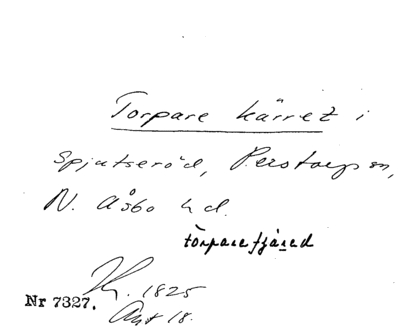 Torpare kärret i
Spjutseröd, Perstorps sn,
N. Åsbo hd.
torpare fjäred
K. 1825
Nr 7327.
Akt 18.